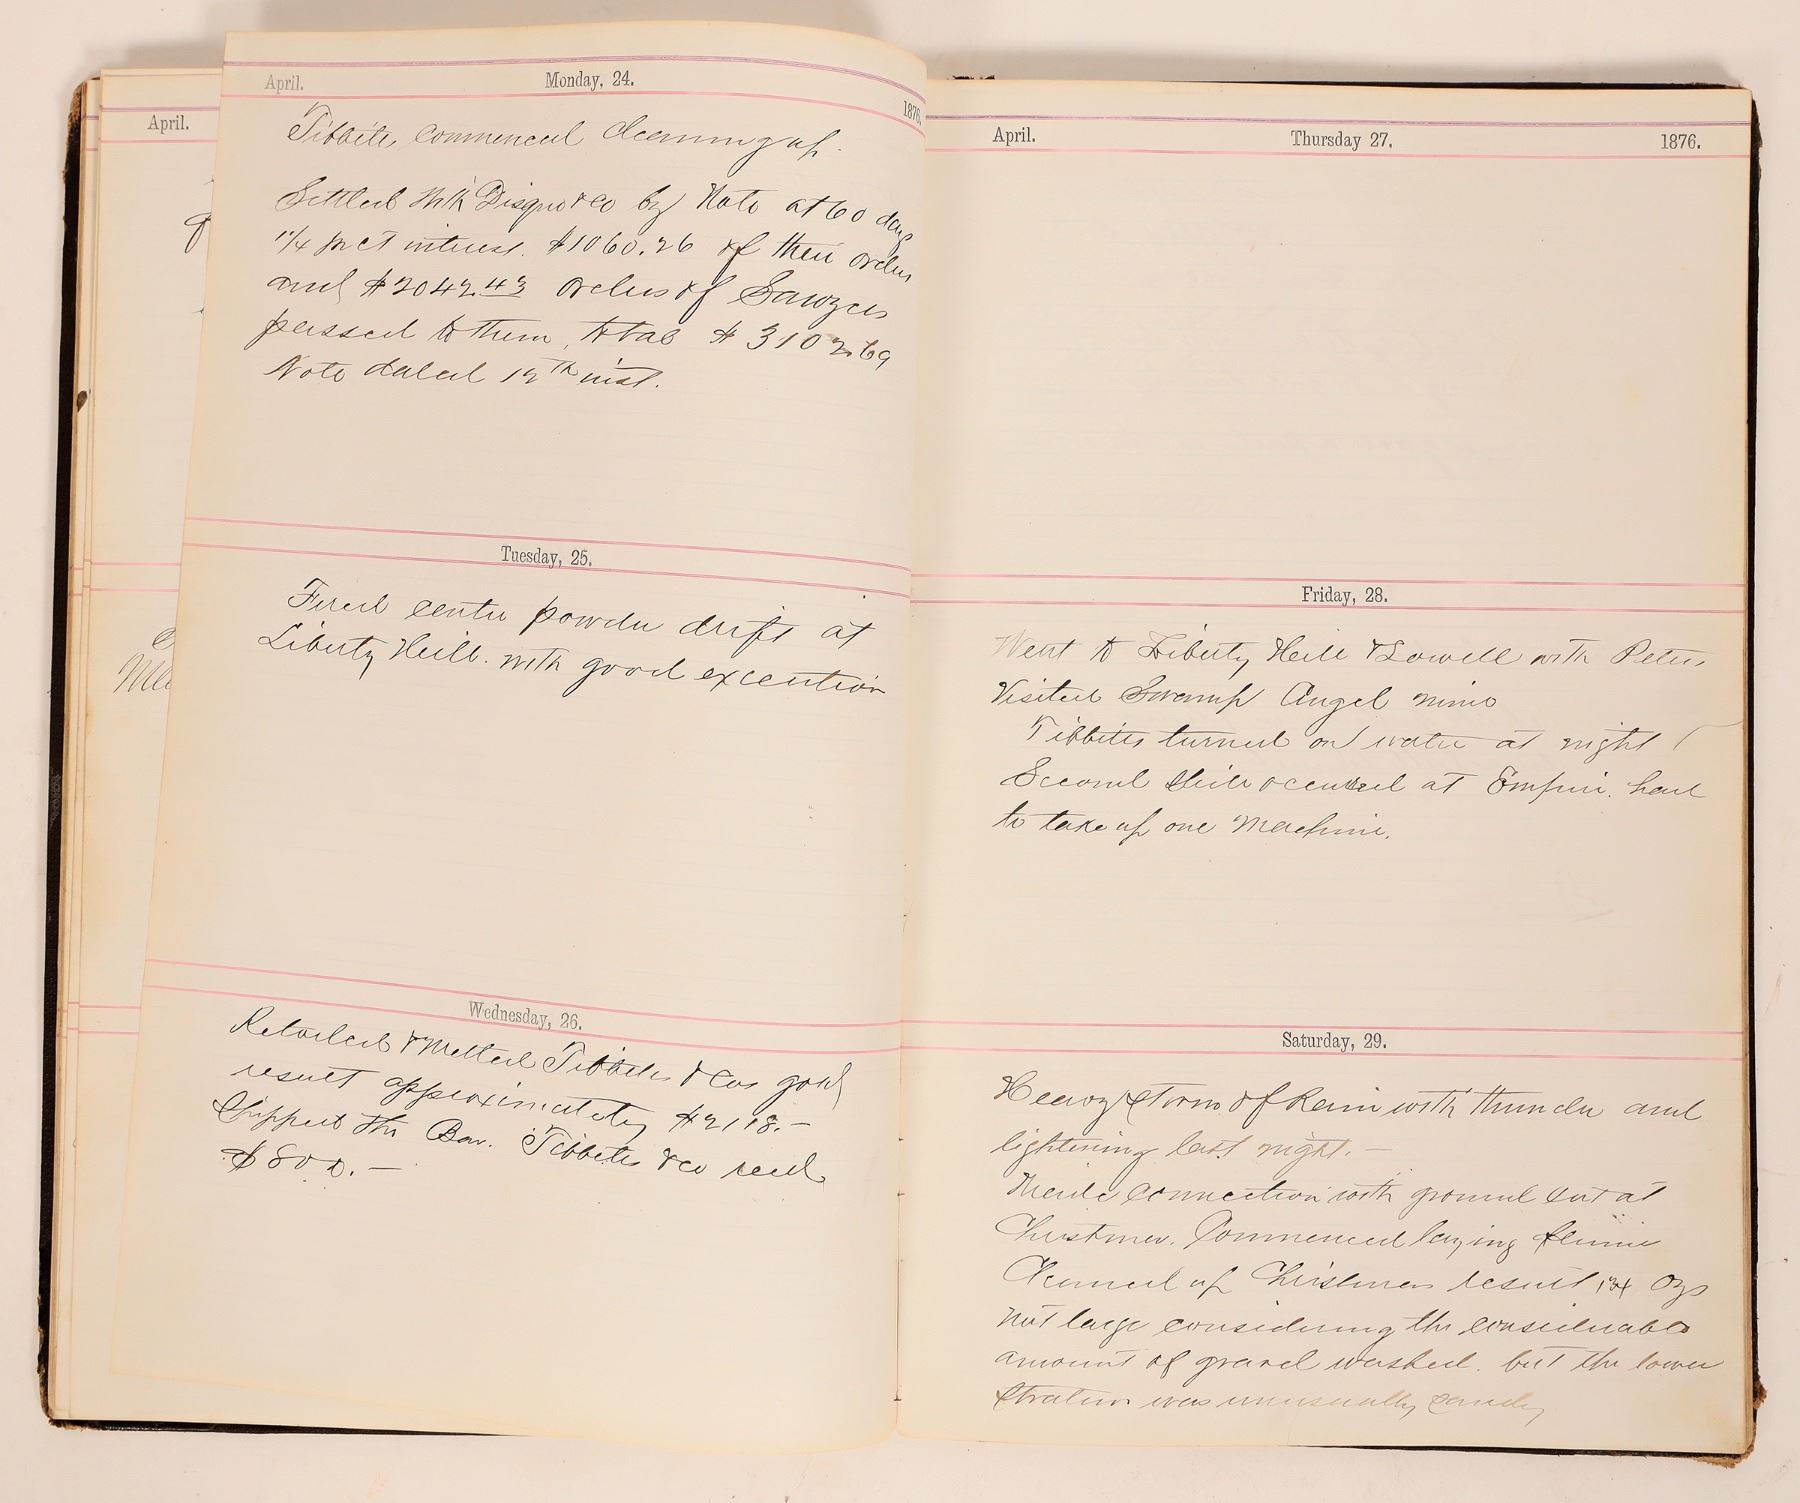 April.
April. Monday, 24. 1876.
Tibbits commenced cleaning up.
Settled with Disque & Co by Note at 60 days
1¼ pr ct interest. $1060.26 of their orders
and $2042.43 orders of Sawyers
passed to them, total $3102.69
Note dated 12th inst.
Tuesday, 25.
Fired center powder drift at
Liberty Hill. with good execution
Wednesday, 26.
Retorted & Melted Tibbits & Cos gold
result approximately $2118.—
Shipped the Bar. Tibbits & Co recd
$800.—
April. Thursday 27. 1876.
Friday, 28.
Went to Liberty Hill & Lowell with Peters
Visited Swamp Angel mine
Tibbits turned on water at night
Second slide occurred at Empire. had
to take up one Machine.
Saturday, 29.
Heavy storm of Rain with thunder and
lightening last night.—
Made connection with ground cut at
Christmas. Commenced laying flume
Cleaned up Christmas result 134 Ozs
not large considering the considerable
amount of gravel washed. but the lower
stratum was unusually sandy